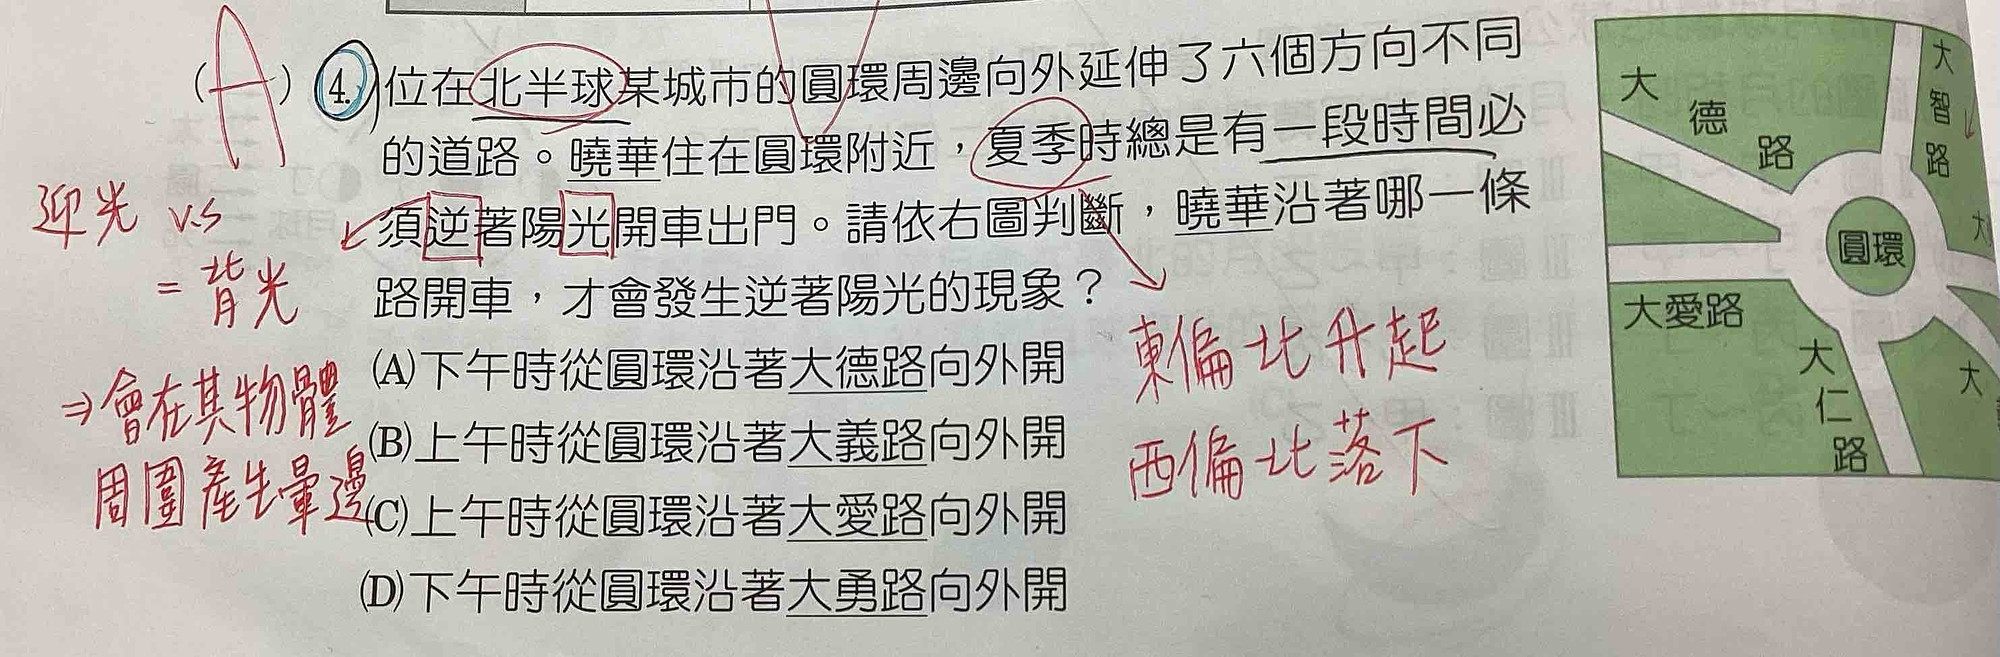 (A) 4. 位在北半球某城市的圓環周邊向外延伸了六個方向不同
的道路。曉華住在圓環附近，夏季時總是有一段時間必
須逆著陽光開車出門。請依右圖判斷，曉華沿著哪一條
路開車，才會發生逆著陽光的現象？
(A)下午時從圓環沿著大德路向外開
(B)上午時從圓環沿著大義路向外開
(C)上午時從圓環沿著大愛路向外開
(D)下午時從圓環沿著大勇路向外開
迎光 vs
= 背光
⇒會在其物體
周圍產生暈邊
東偏北升起
西偏北落下
大德路
大智路
圓環
大愛路
大仁路
大
大